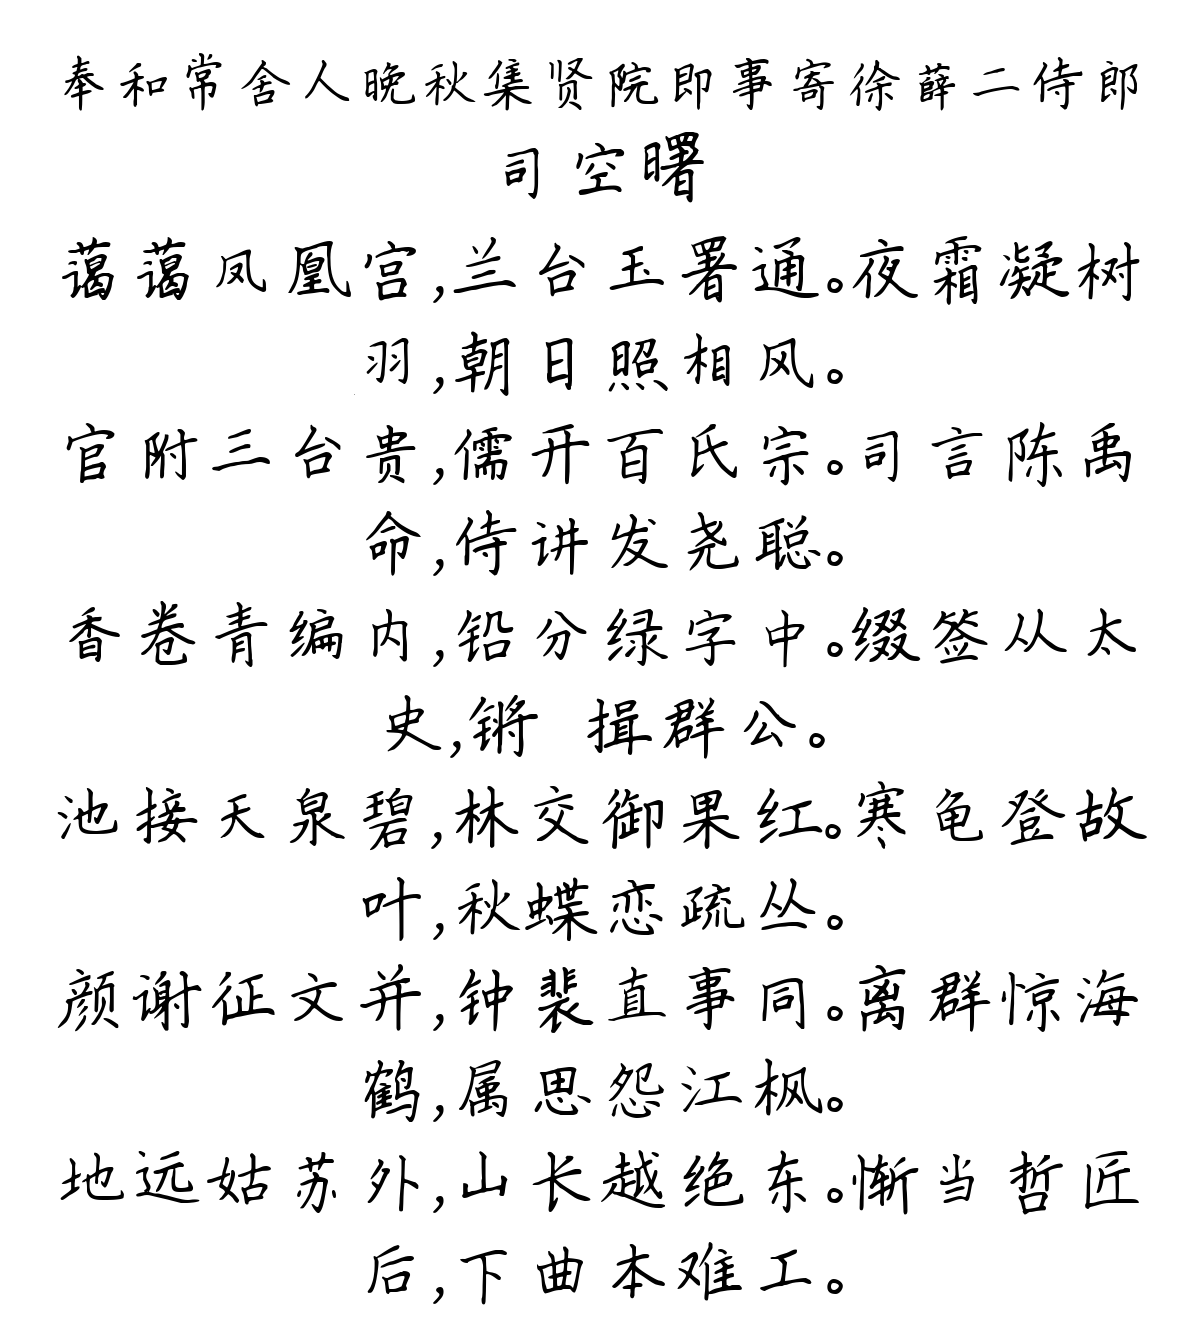 奉和常舍人晚秋集贤院即事寄徐薛二侍郎
司空曙
蔼蔼凤凰宫,兰台玉署通。夜霜凝树
羽,朝日照相风。
官附三台贵,儒开百氏宗。司言陈禹
命,侍讲发尧聪。
香卷青编内,铅分绿字中。缀签从太
史,锵 揖群公。
池接天泉碧,林交御果红。寒龟登故
叶,秋蝶恋疏丛。
颜谢征文并,钟裴直事同。离群惊海
鹤,属思怨江枫。
地远姑苏外,山长越绝东。惭当哲匠
后,下曲本难工。